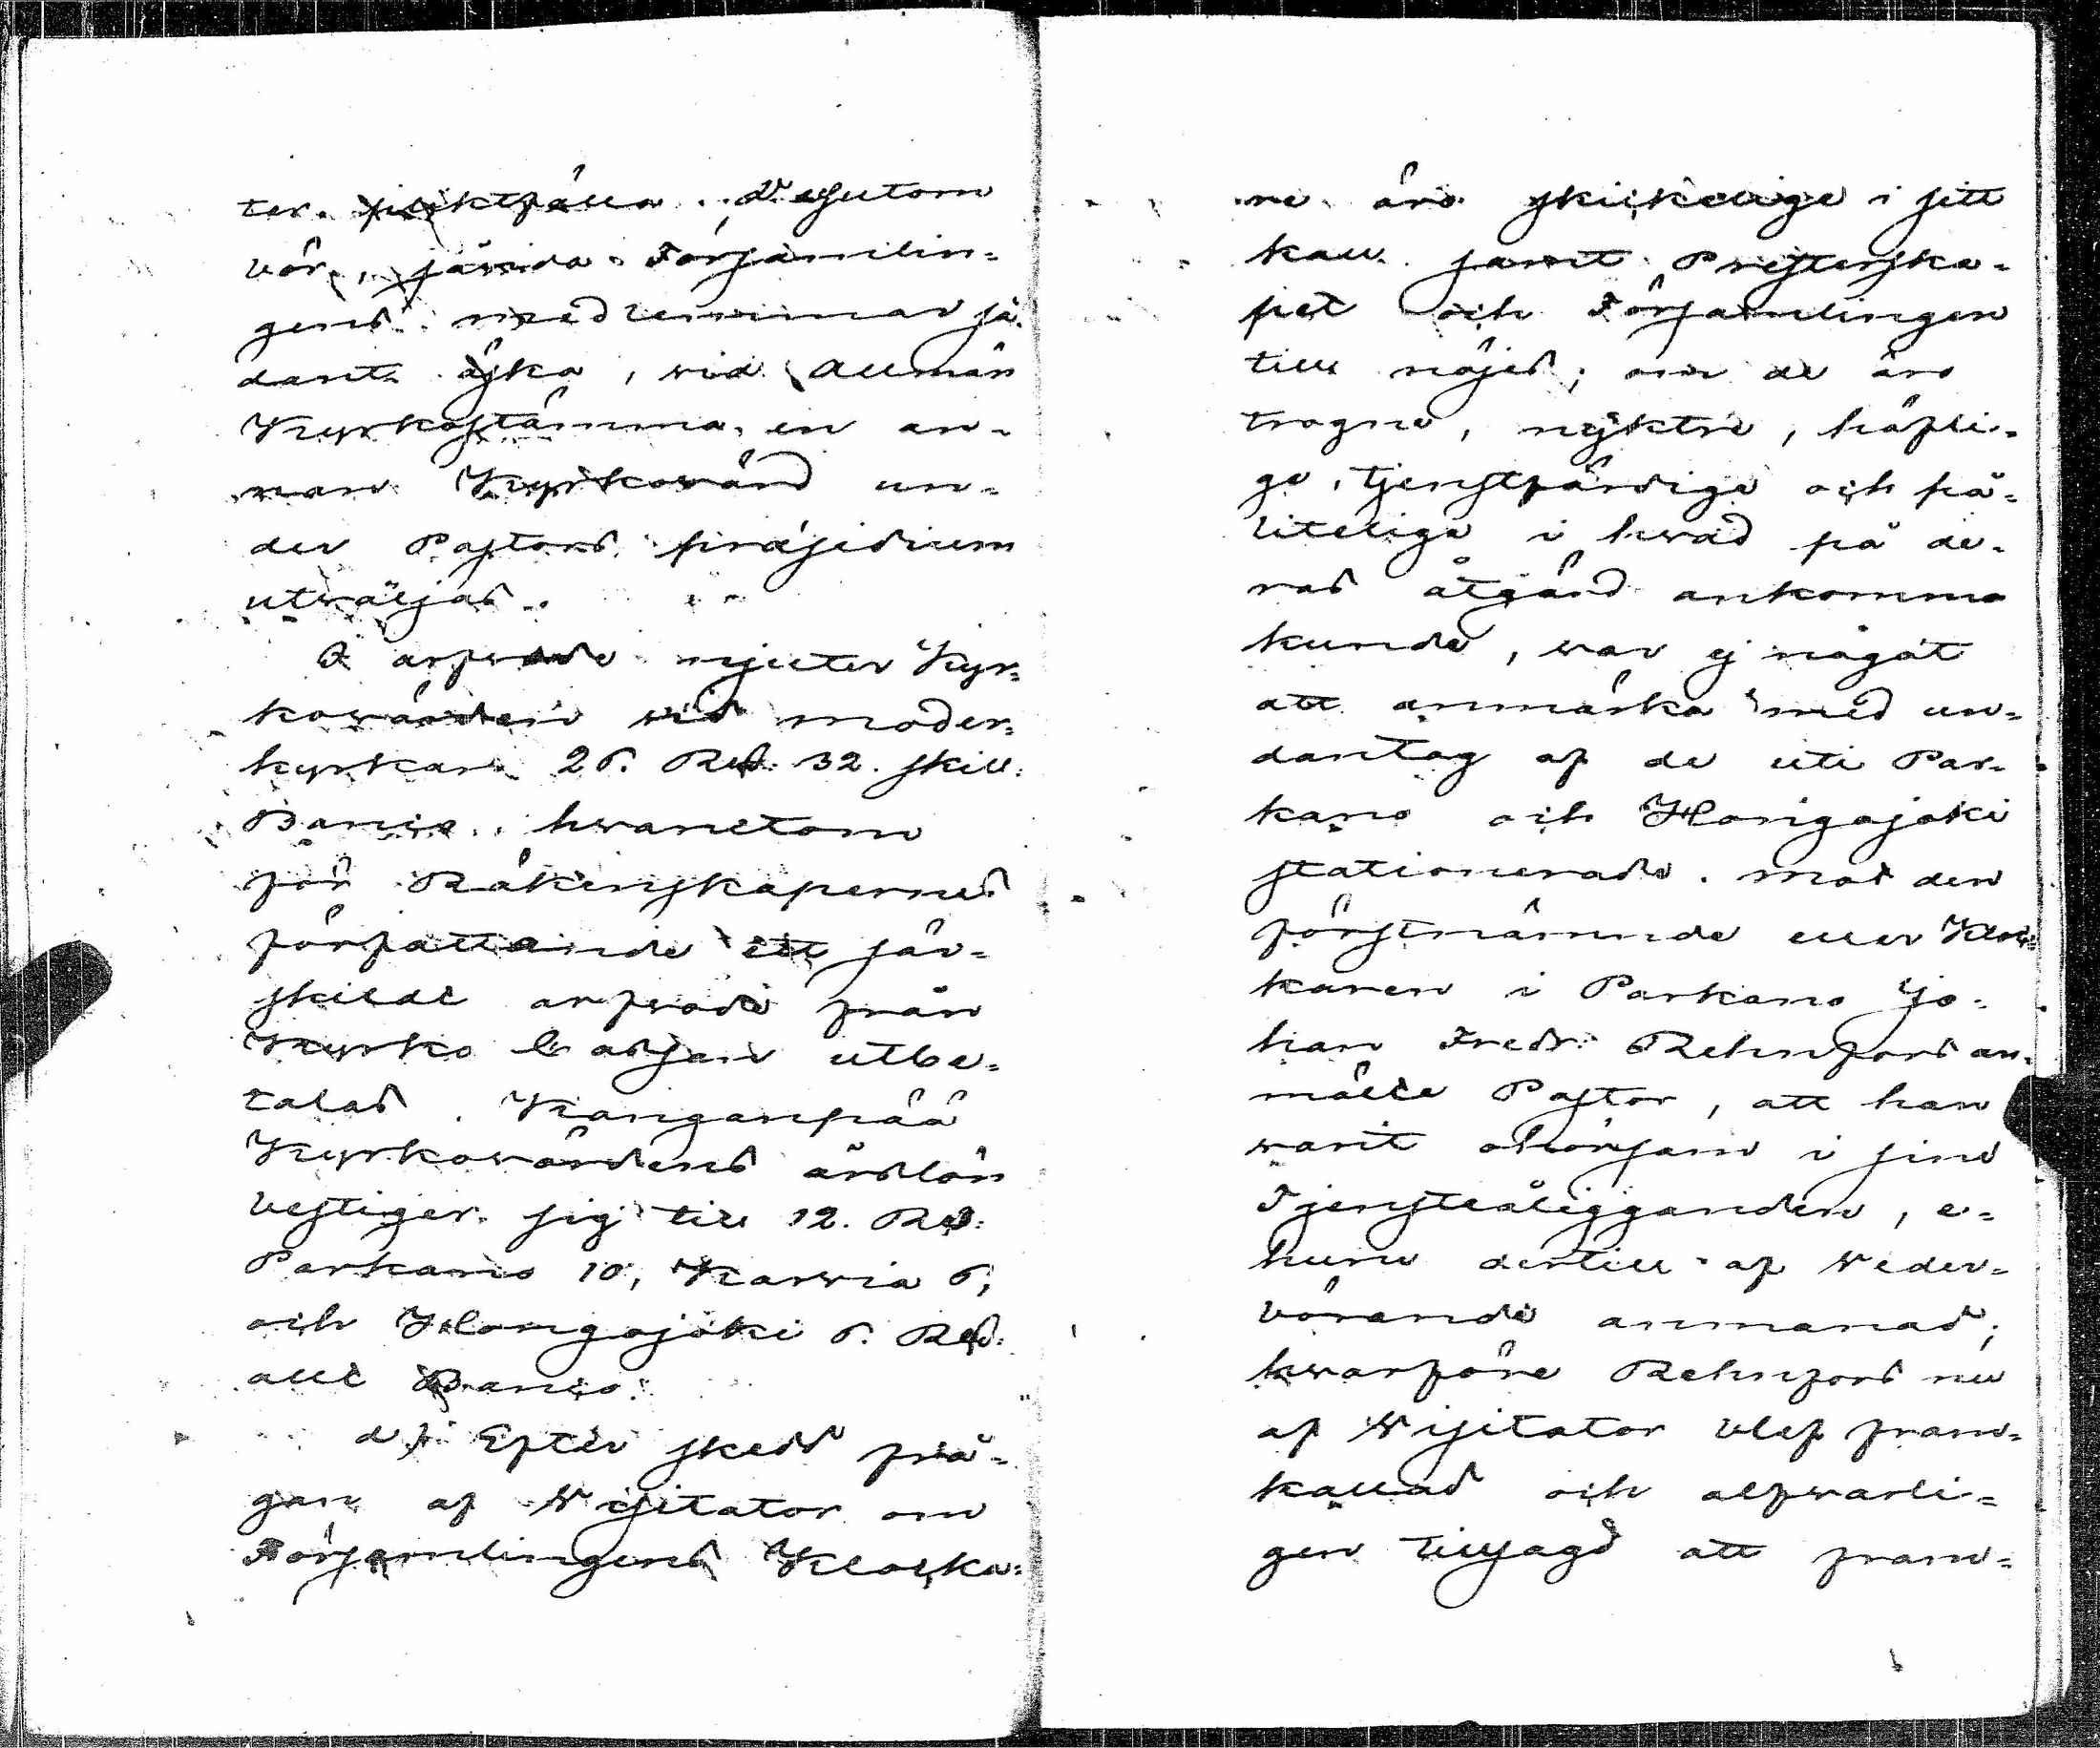 ter. pliktfälla. Dessutom
bör, sända Församlin=
gens medlemmar så=
dant äska, vid Allmän
Kyrkostämma, en an=
nan Kyrkovärd un=
der Pastors præsidium
utwäljas.
I arfwode njuter Kyr=
kowärden wid moder=
kyrkan 26. Rd. 32. skill.
Banco. hwarutom
för Räkenskapernas
författande ett sär=
skildt arfwode från
Kyrko Cassan utbe=
talas. Kanganpää
Kyrkowärdens årslön
bestiger sig till 12. Rd.
Parkano 10, Karvia 6,
och Hongojoki 6. Rd.
allt Banco.
d). Efter skedd frå=
gan af Visitator om
Församlingens Klocka=
re äro skickelige i sitt
kall samt Presterska=
pet och Församlingen
till nöjes; om de äro
trogne, nyktre, höfli=
ge, tjenstfärdige och på=
litelige i hvad på de=
ras åtgärd ankomma
kunde, var ej något
att anmärka med un=
dantag af de uti Par=
kano och Hongojoki
stationerade. Mot den
förstnämnde eller Kloc=
karen i Parkano Jo=
han Fredr. Rehnfors an=
mälte Pastor, att han
varit ohörsam i sine
Tjensteåligganden, e=
huru dertill af Veder=
börande anmanad;
hvarföre Rehnfors nu
af Visitator blef fram=
kallad och alfvarli=
gen tillsagd att fram=